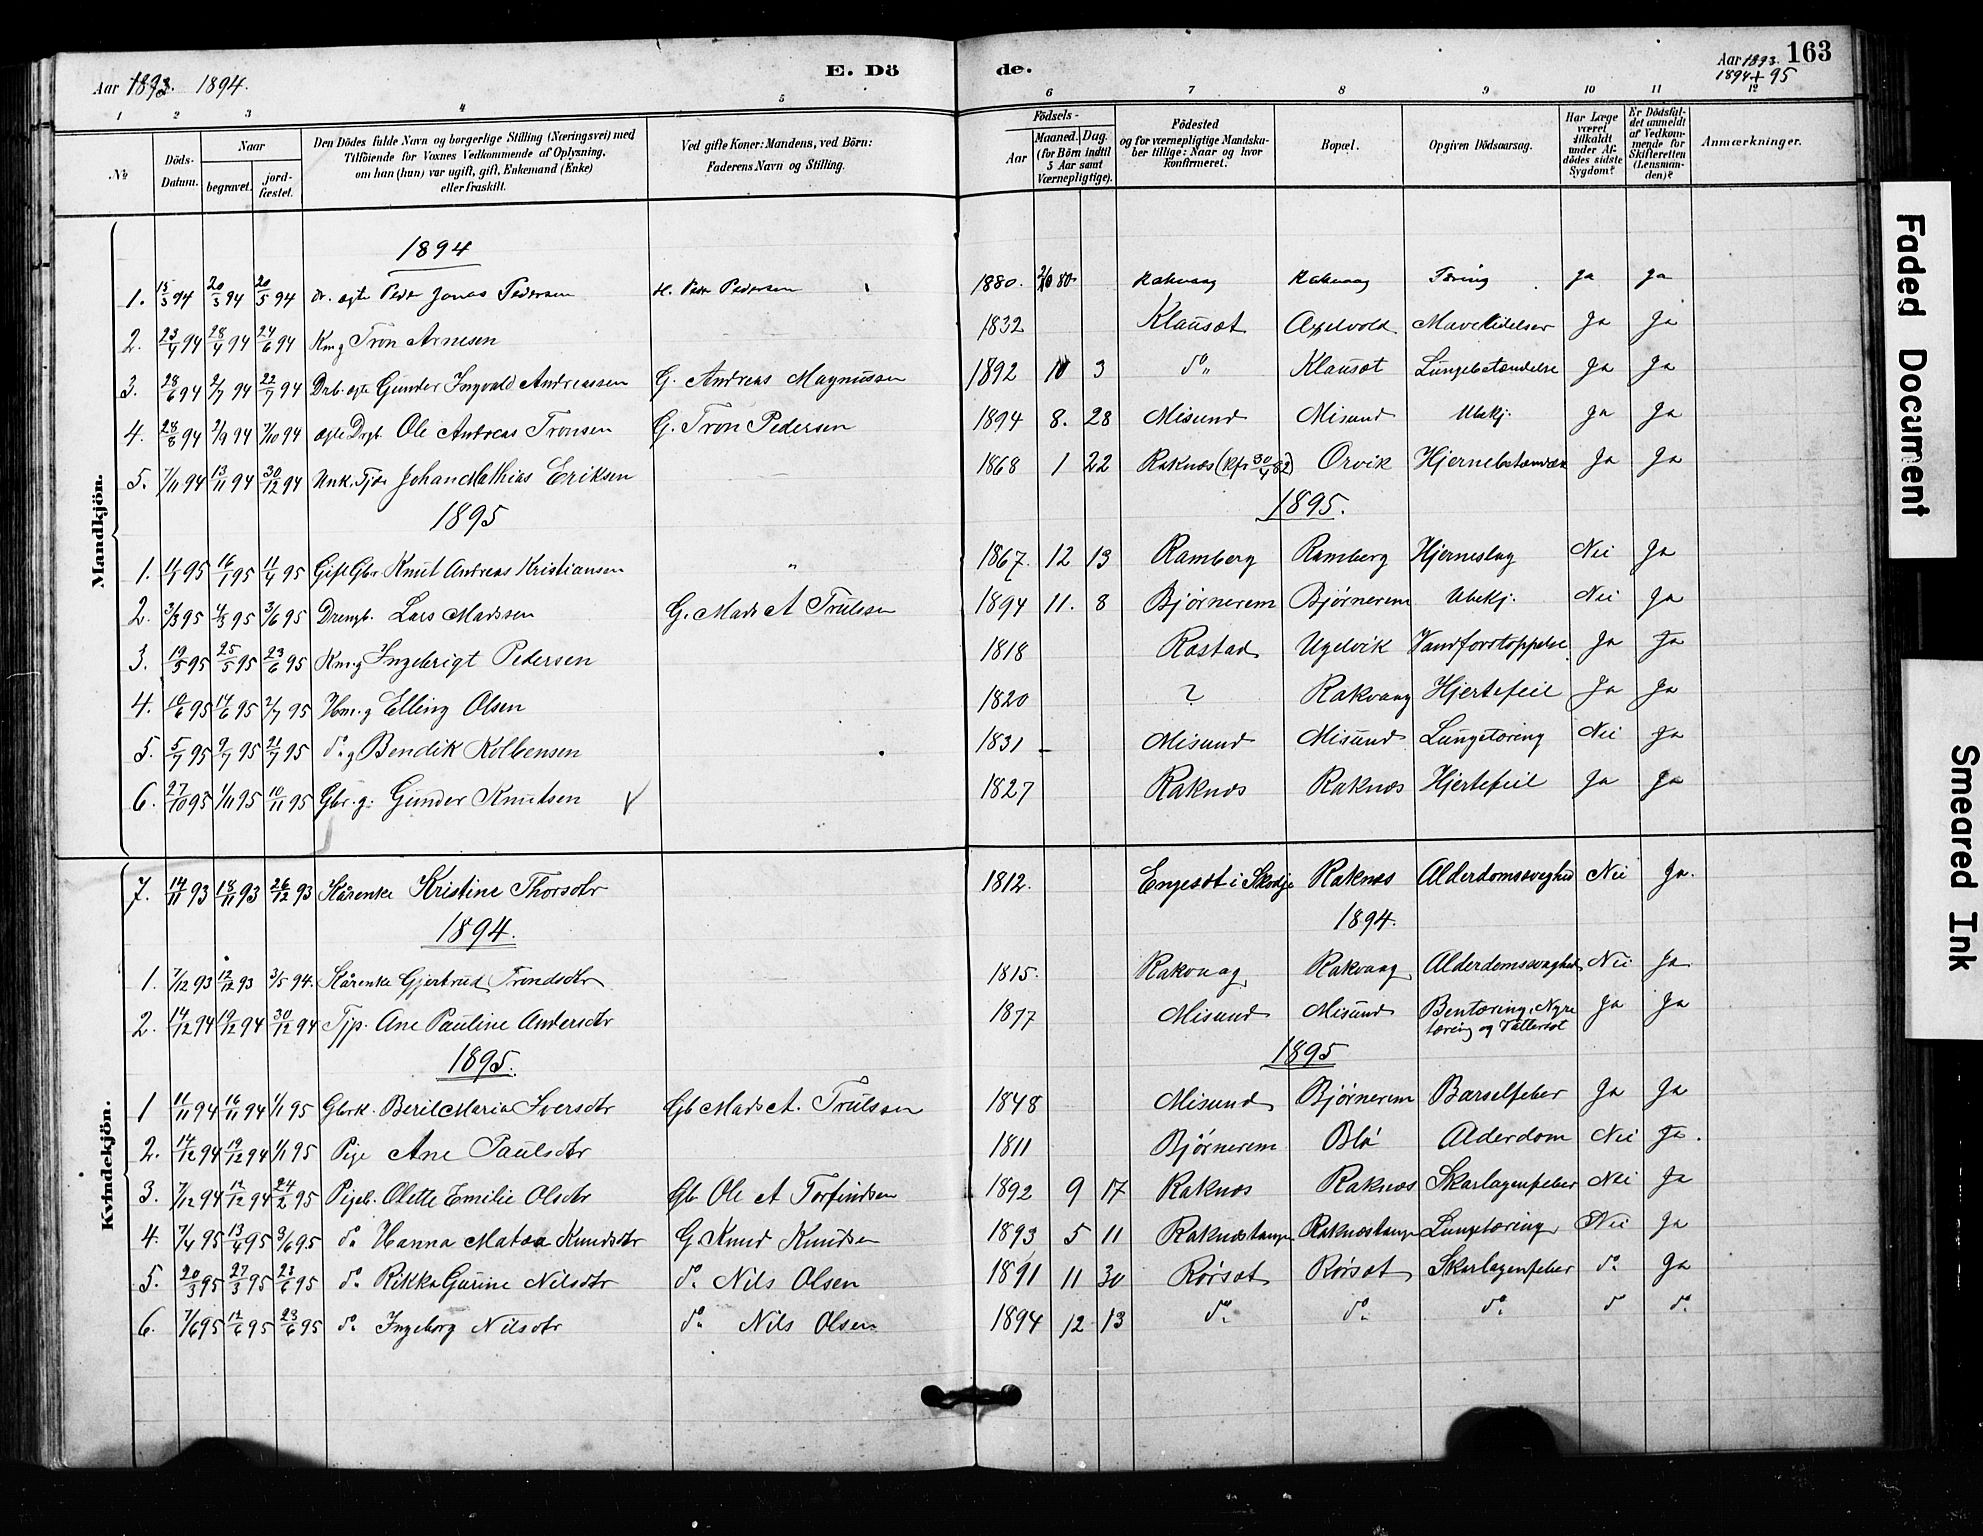 Aar 1893. 1894.
E. Dö
de.
Aar 1893. 163
1894 + 95
1 2 3 4 5 6 7 8 9 10 11 12
No
Döds-Datum.
Naar
begravet.
jord-fæstet.
Den Dödes fulde Navn og borgerlige Stilling (Næringsvei) med
Tilföiende for Voxnes Vedkommende af Oplysning,
om han (hun) var ugift, gift, Enkemand (Enke)
eller fraskilt.
Ved gifte Koner: Mandens, ved Börn:
Faderens Navn og Stilling.
Födsels-
Aar
Maaned. Dag.
(for Börn indtil
5 Aar samt
Værnepligtige).
Födested
og for værnepligtige Mandska-
ber tillige: Naar og hvor
konfirmeret.
Bopæl.
Opgiven Dödsaarsag.
Har Læge
været
tilkaldt
under Af-
dödes sidste
Sygdom?
Er Dödsfal-
det anmeldt
af Vedkom-
mende for
Skifteretten
(Lensman-
den)?
Anmærkninger.
Mandkjön.
1894
1. 15/3 94 20/3 94 20/5 94 dr. ægte Peder Jonas Pedersen H. Peder Pedersen 1880. 2/10 80 Rakvaag Rakvaag Tæring Ja Ja
2. 23/4 94 28/4 94 24/6 94 Km g Tron Arnesen 1832 Klauset Axelvold Mavelidelser Ja Ja
3. 28/6 94 2/7 94 22/7 94 Drb. ægte Gunder Ingvald Andreassen G. Andreas Magnussen 1892 10 3 do „ Klauset Lungebetændelse Ja Ja
4. 28/8 94 2/9 94 7/10 94 ægte Drgb. Ole Andreas Tronsen G. Tron Pedersen 1894 8. 28 Misund Misund Ubekj. Ja Ja
5. 7/11 94 13/11 94 30/12 94 Unk. Tje. Johan Mathias Eriksen 1868 1 22 Raknæs (kfr 30/4 82) Orvik Hjernebetændelse Ja Ja
1895 1895.
1. 11/1 95 16/1 95 11/4 95 Gift Gbr. Knut Andreas Kristiansen „ 1867. 12 13 Ramberg Ramberg Hjerneslag Nei Ja
2. 3/3 95 4/3 95 3/6 95 Drengb. Lars Madssen G. Mads A Trulssen 1894 11. 8 Bjørnerem Bjørnerem Ubekj. Nei Ja
3. 19/5 95 25/5 95 23/6 95 Km. g Ingebrigt Pedersen 1818 Røstad Ugelvik Vandforstoppelse Ja Ja
4. 10/6 95 14/6 95 2/7 95 Hm. g Elling Olsen 1820 ? Rakvaag Hjertefeil Ja Ja
5. 5/7 95 9/7 95 21/7 95 do g Bendik Kolbensen 1831 Misund Misund Lungetæring Nei Ja
6. 27/10 95 1/11 95 10/11 95 Gbr. g. Gunder Knutsen V 1827 Raknæs Raknæs Hjertefeil Ja Ja
Kvindekjön.
7. 14/11 93 18/11 93 26/12 93 Kårenke Kristine Thorsdtr 1812. Engeset i Skodje Raknæs Alderdomssvaghed Nei Ja.
1894. 1894.
1. 7/12 93 12/12 93 3/5 94. Kårenke Gjertrud Trondsdtr 1815. Rakvaag Rakvaag Alderdomssvaghed Nei Ja
2. 14/12 94 19/12 94 30/12 94 Tjp. Ane Pauline Andersdtr 1877 Misund Misund Bentæring, Nyre
tæring og Vattersot Ja Ja
1895. 1895
1 11/11 94 16/11 94 1/1 95 Gbrk. Beril Maria Iversdtr Gb Mads A. Trulssen 1848 Misund Bjørnerem Barselfeber Ja Ja
2. 14/12 94 19/12 94 1/1 95 Pige Ane Paulsdtr 1811 Bjørnerem Blå Alderdom Nei Ja.
3. 7/12 94 12/12 94 24/2 95 Pigeb. Olette Emilie Olsdtr Gb Ole A Torfindsen 1892 9 17 Raknæs Raknæs Skarlagensfeber Nei Ja
4. 7/4 95 13/4 95 3/6 95 do Hanna Matea Knudsdtr G Knud Knudsen 1893 5 11 Raknæstange Raknæstange Lungetæring Nei Ja
5. 20/3 95 27/3 95 23/6 95 do Rikka Gurine Nilsdtr do Nils Olsen 1891 11 30 Rørset Rørset Skarlagensfeber do Ja
6. 7/6 95 12/6 95 23/6 95 do Ingeborg Nilsdtr do Nils Olsen 1894 12 13 do do do do do
Faded Document
Smeared Ink